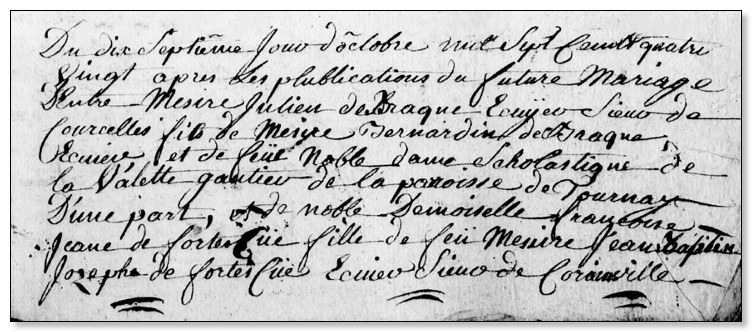 Du dix Septiême Jour d'octobre mil Sept Cent quatre
Vingt apres les plublications du future Mariage
D'Entre Mesire Julien de Braque Ecuÿer Sieur de
Courcelles fils de Mesire Bernardin de Braque,
Ecuiere, et de feüe Noble dame Scholastique de
la Valette gautier de la paroisse de Tournay
D'une part, et de noble Demoiselle françoise
Jeane de fortesCüe fille de feü Messire Jean Baptiste
Josephe de fortesCüe Ecuier Sieur de Corainville